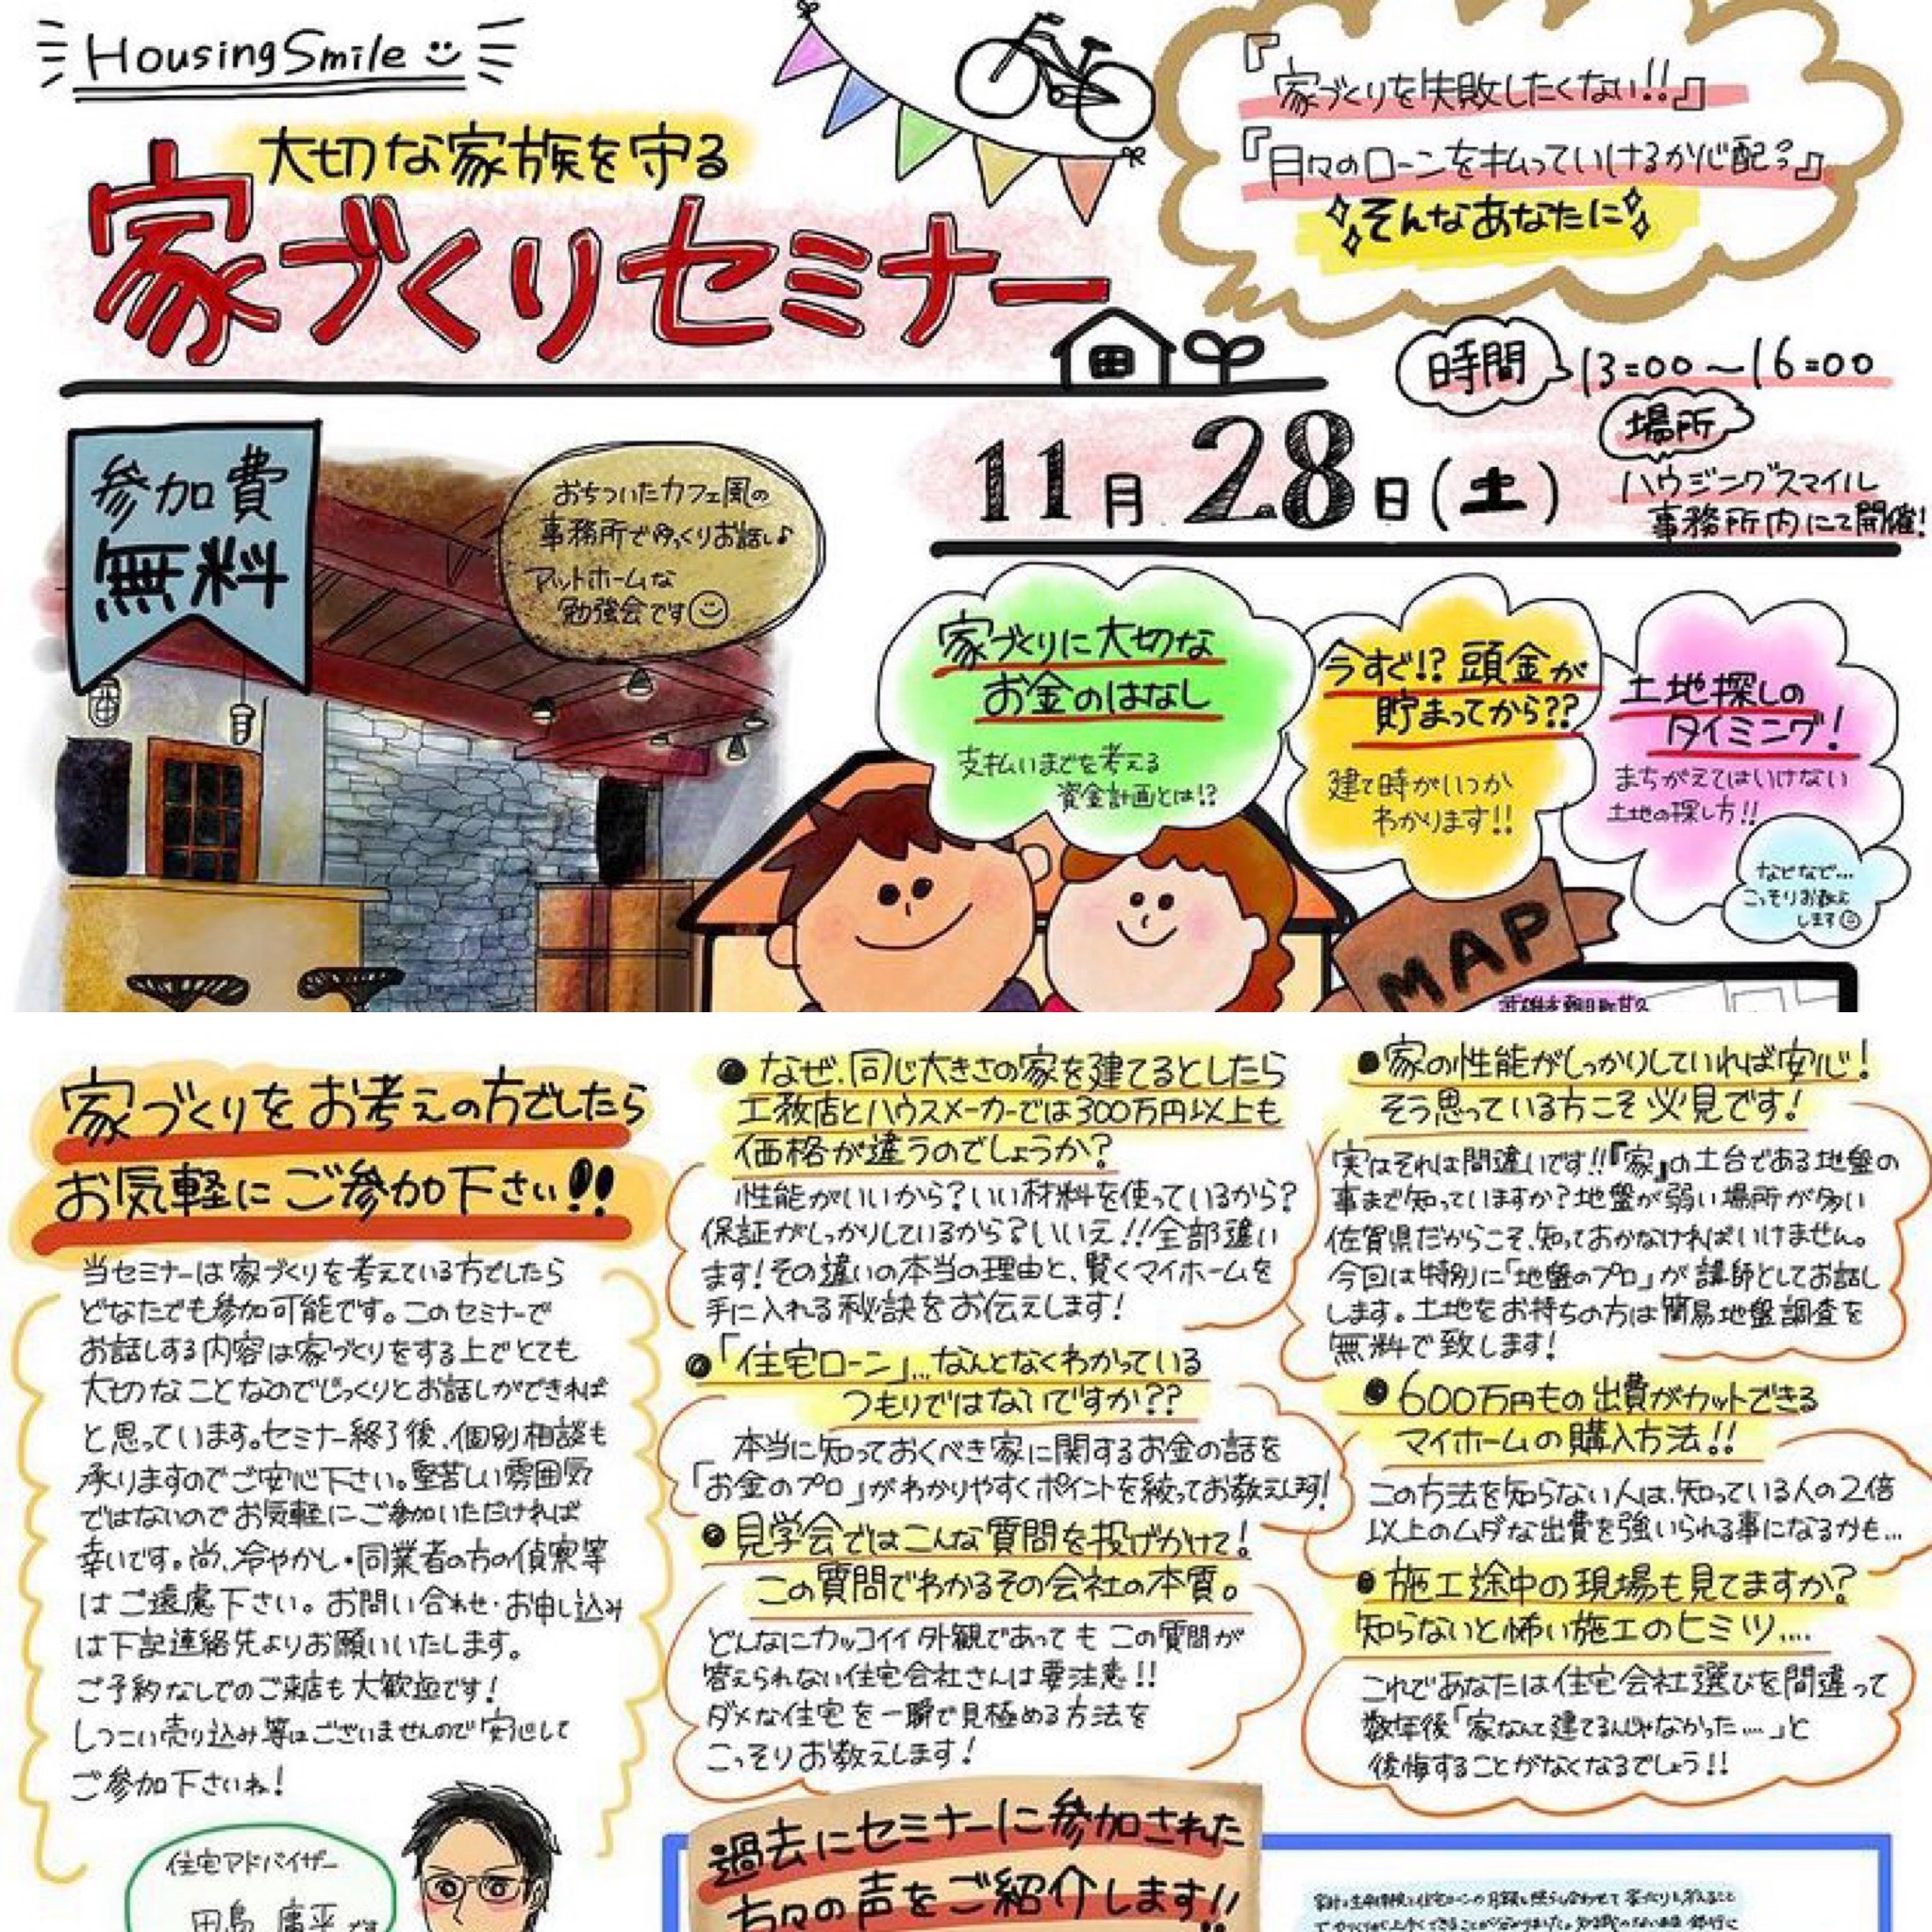 HousingSmile
大切な家族を守る
家づくりセミナー
『家づくりを失敗したくない!!』
『月々のローンを払っていけるか心配?』
そんなあなたに
時間 13:00〜16:00
11月28日(土)
場所
ハウジングスマイル
事務所内にて開催!
参加費
無料
おちついたカフェ風の
事務所でゆっくりお話し♪
アットホームな
勉強会です
家づくりに大切な
お金のはなし
支払いまでを考える
資金計画とは!?
今すぐ!? 頭金が
貯まってから??
建て時がいつか
わかります!!
土地探しの
タイミング!
まちがえてはいけない
土地の探し方!!
などなど...
こっそりお教え
します
MAP
家づくりをお考えの方でしたら
お気軽にご参加下さい!!
当セミナーは家づくりを考えている方でしたら
どなたでも参加可能です。このセミナーで
お話しする内容は家づくりをする上でとても
大切なことなのでじっくりとお話しができれば
と思っています。セミナー終了後、個別相談も
承りますのでご安心下さい。堅苦しい雰囲気
ではないのでお気軽にご参加いただければ
幸いです。尚、冷やかし・同業者の方の偵察等
はご遠慮下さい。お問い合わせ・お申し込み
は下記連絡先よりお願いいたします。
ご予約なしでのご来店も大歓迎です!
しつこい売り込み等はございませんので安心して
ご参加下さいね!
住宅アドバイザー
田島 庸平です
●なぜ、同じ大きさの家を建てるとしたら
工務店とハウスメーカーでは300万円以上も
価格が違うのでしょうか?
性能がいいから?いい材料を使っているから?
保証がしっかりしているから?いいえ!!全部違い
ます!その違いの本当の理由と、賢くマイホームを
手に入れる秘訣をお伝えします!
●「住宅ローン」...なんとなくわかっている
つもりではないですか??
本当に知っておくべき家に関するお金の話を
「お金のプロ」がわかりやすくポイントを絞ってお教えします!
●見学会ではこんな質問を投げかけて!
この質問でわかるその会社の本質。
どんなにカッコイイ外観であってもこの質問が
答えられない住宅会社さんは要注意!!
ダメな住宅を一瞬で見極める方法を
こっそりお教えします!
●家の性能がしっかりしていれば安心!
そう思っている方こそ必見です!
実はそれは間違いです!!『家』の土台である地盤の
事まで知っていますか?地盤が弱い場所が多い
佐賀県だからこそ、知っておかなければいけません。
今回は特別に「地盤のプロ」が講師としてお話し
します。土地をお持ちの方は簡易地盤調査を
無料で致します!
●600万円もの出費がカットできる
マイホームの購入方法!!
この方法を知らない人は、知っている人の2倍
以上のムダな出費を強いられる事になるかも...
●施工途中の現場も見てますか?
知らないと怖い施工のヒミツ....
これであなたは住宅会社選びを間違って
数年後「家なんて建てるんじゃなかった....」と
後悔することがなくなるでしょう!!
過去にセミナーに参加された
方々の声をご紹介します!!